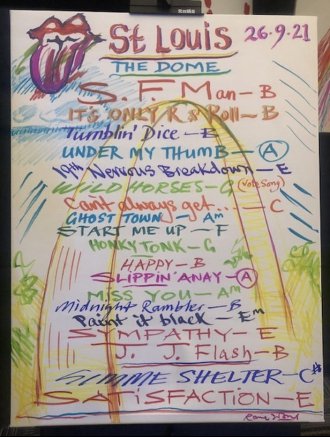 St Louis 26.9.21
THE DOME
S.F. Man - B
IT'S ONLY R & Roll - B
Tumblin' Dice - E
UNDER MY THUMB - A
19th Nervous Breakdown - E
WILD HORSES - G (Vote Song)
Can't always get... - C
GHOST TOWN - Am
START ME UP - F
HONKY TONK - G
HAPPY - B
SLIPPIN' AWAY - A
MISS YOU - Am
Midnight Rambler - B
Paint it black - Em
SYMPATHY - E
J. J. Flash - B
GIMME SHELTER - C#
SATiSFACTION - E